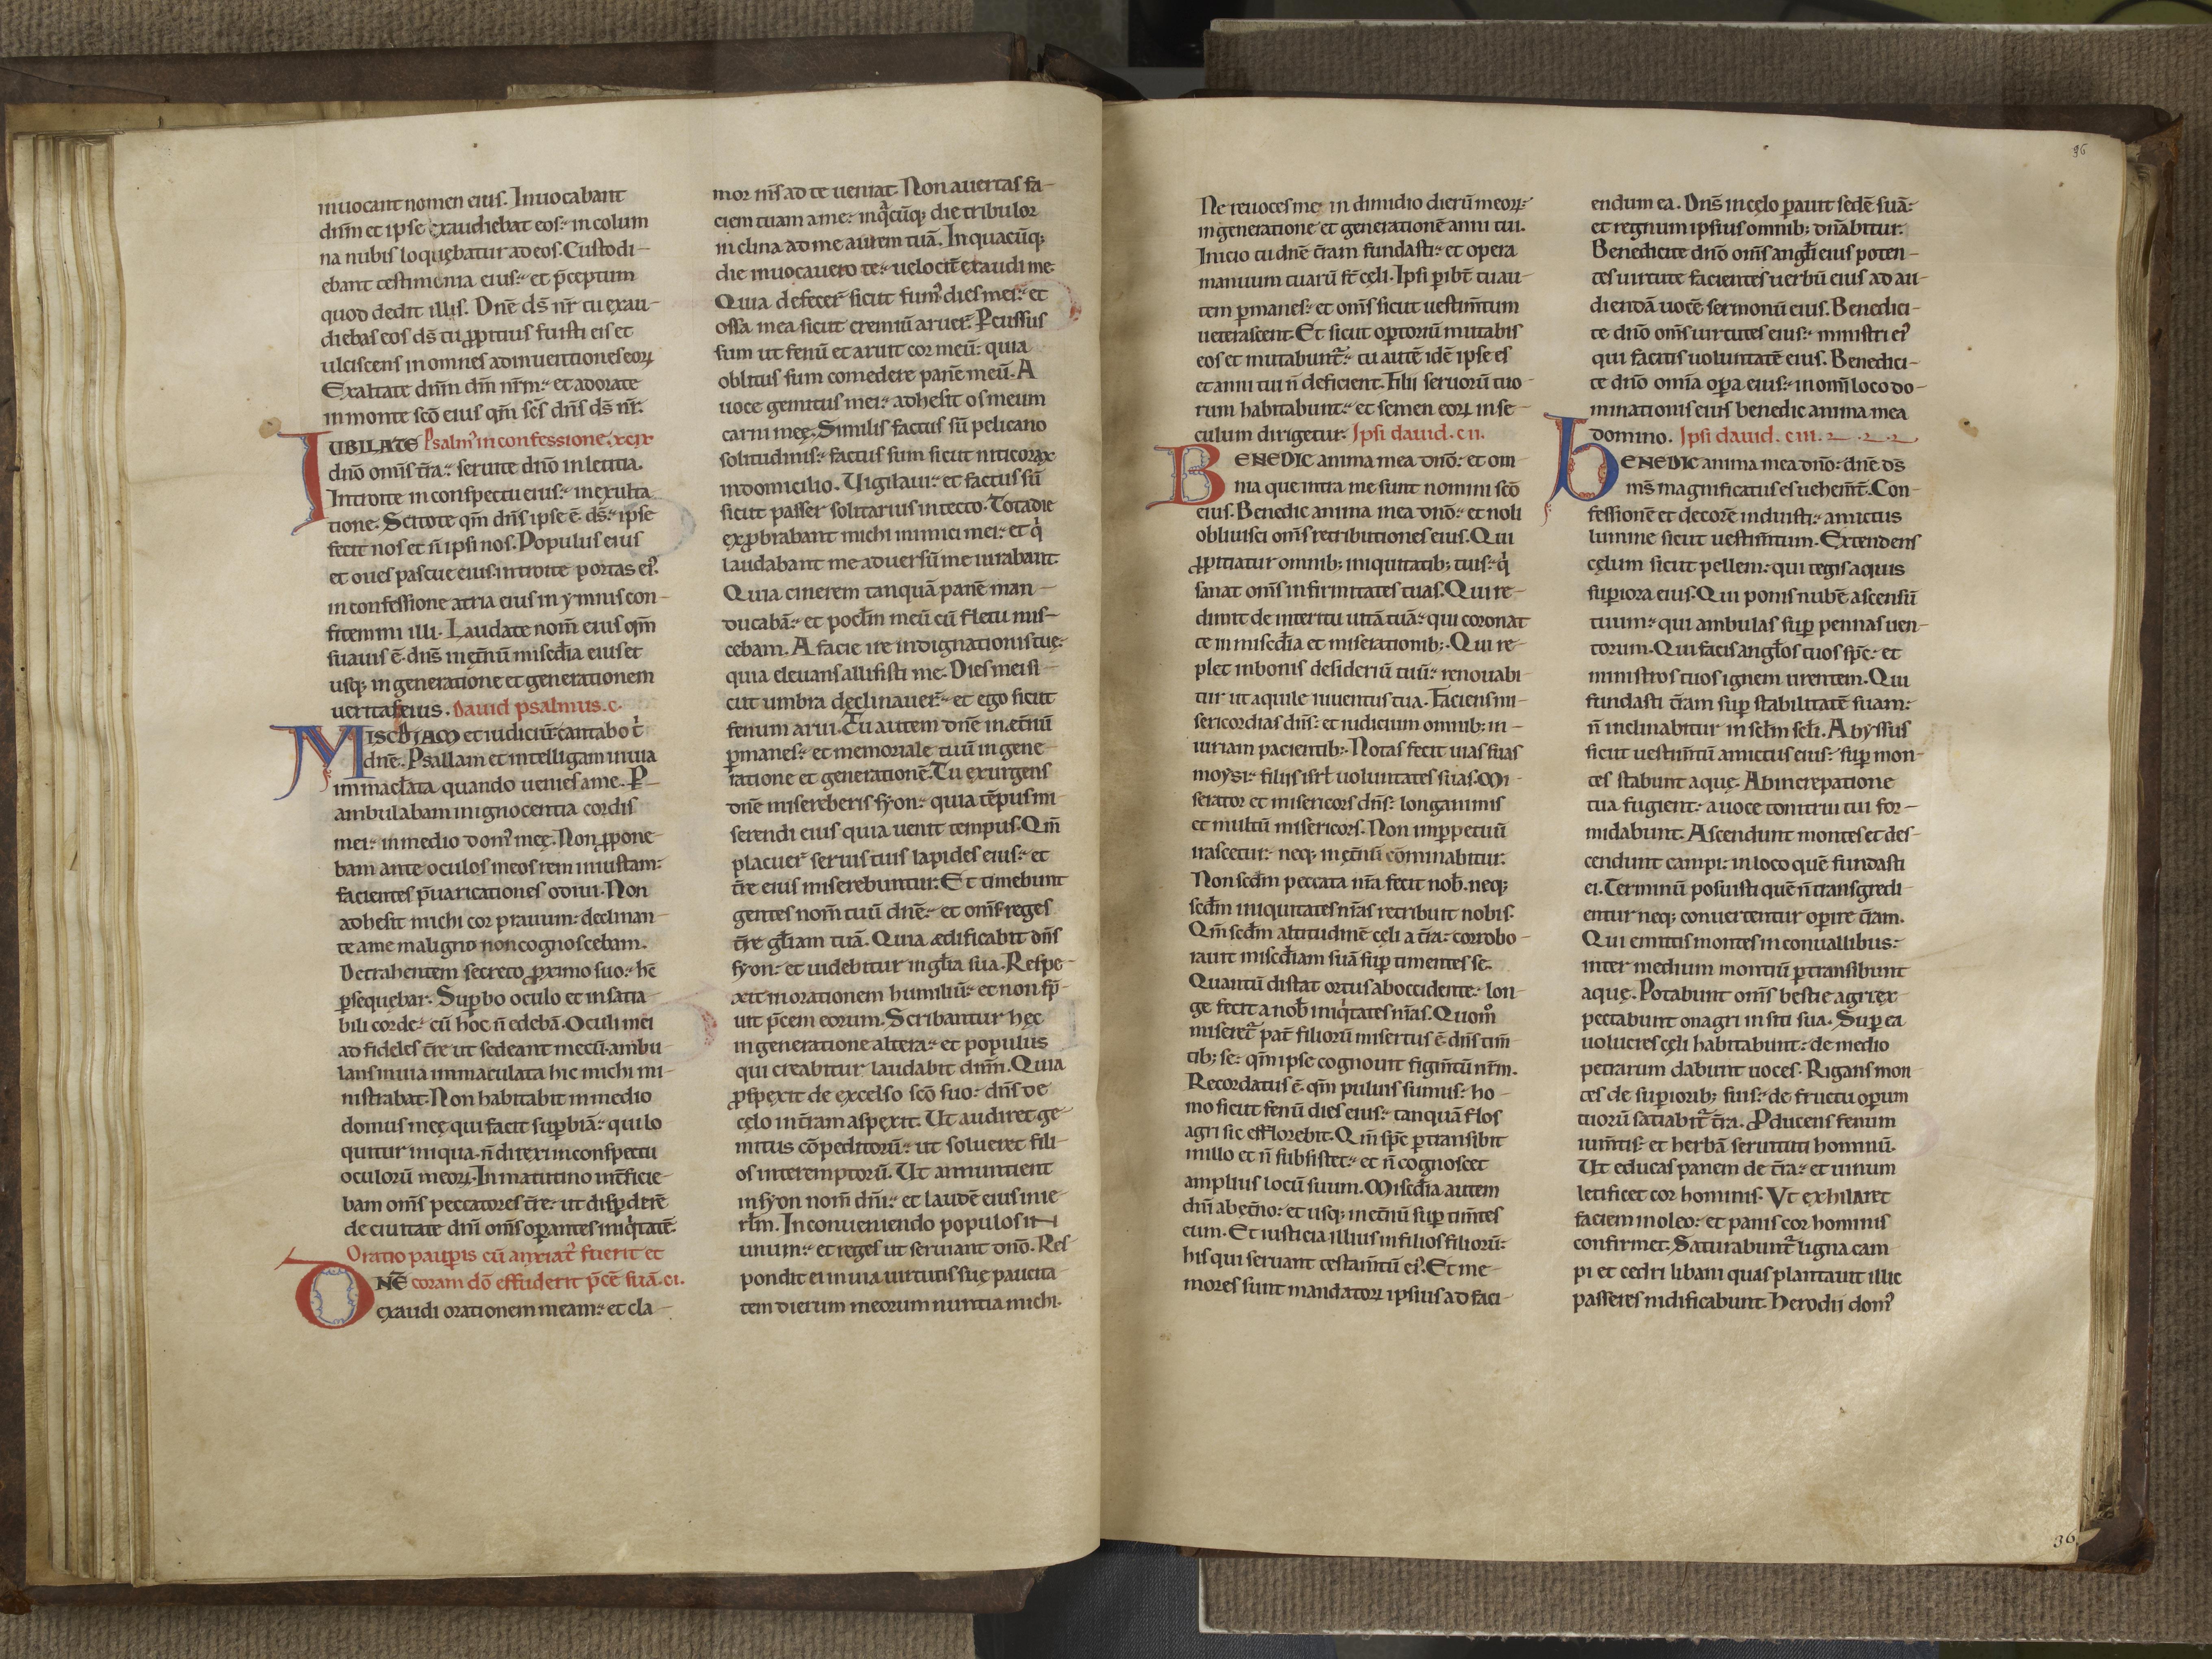 inuocant nomen eius. Inuocabant
dñm et ipse exaudiebat eos: in colum
na nubis loquebatur ad eos. Custodi-
ebant testimonia eius: et p̄ceptum
quod dedit illis. Dñe d̄s nr̄ tu exau-
diebas eos d̄s tu ꝓpitius fuisti eis et
ulciscens in omnes adinuentiones eoꝝ
Exaltate dñm dm̄ nr̄m: et adorate
in monte sc̄o eius qm̄ sc̄s dñs d̄s nr̄.
IUBILATE Psalm᾽ in confessione. xcix
dño om̄s tr̄a: seruite dño in letitia.
Introite in conspectu eius: in exulta
tione. Scitote qm̄ dñs ipse ē d̄s: ipse
fecit nos et ñ ipsi nos. Populus eius
et oues pascue eius. introite portas ei᾽.
in confessione atria eius in ymnis con-
fitemini illi. Laudate nom̄ eius qm̄
suauis ē dñs in et̄nū misc̄dia eius et
usq; in generatione et generationem
ueritas eius. Dauid psalmus. c.
MISC̄DIAM et iudiciū: cantabo t̄
dñe. Psallam et intelligam in uia
immac̄lata quando uenies a me. P̲-
ambulabam in ignocentia cordis
mei: in medio dom᾽ meę. Non ꝓpone-
bam ante oculos meos rem iniustam:
facientes p̄uaricationes odiui. Non
adhesit michi cor prauum: declinan-
te a me maligno non cognoscebam.
Detrahentem secreto ꝓximo suo: hc̄
ꝑsequebar. Supbo oculo et insatia-
bili corde: cū hoc ñ edebā. Oculi mei
ad fideles tr̄e ut sedeant mecū. ambu
lans in uia immaculata hic michi mi-
nistrabat. Non habitabit in medio
domus meę qui facit supbiā: qui lo
quitur iniqua. ñ direxi in conspectu
oculorū meoꝝ. In matutino int̄ficie-
bam om̄s peccatores tr̄e: ut dispderē
de ciuitate dñi om̄s opantes iniq̇tatē.
Oratio paupis cū anxiat᾽ fuerit et
DNE coram dō effuderit p̄cē suā. ci.
exaudi orationem meam: et cla-
mor ms̄ ad te ueniat. Non auertas fa-
ciem tuam a me: inq̇cūq; die tribulor
inclina ad me aurem tuā. In quacūq;
die inuocauero te: uelocit̄ exaudi me.
Quia defecer̄ sicut fum᾽ dies mei: et
ossa mea sicut cremiū aruer̄. Pcussus
sum ut fenū et aruit cor meū: quia
oblitus sum comedere panē meū. A
uoce gemitus mei: adhesit os meum
carni meę. Similis factus sū pelicano
solitudinis: factus sum sicut niticorax
in domicilio. Uigilaui: et factus sū
sicut passer solitarius in tecto. Tota die
exꝓbrabant michi inimici mei: et q̇
laudabant me aduersū me iurabant.
Quia cinerem tanquā panē man-
ducabā: et poc̄lm meū cū fletu mis-
cebam. A facie ire indignationis tuę:
quia eleuans allisisti me. Dies mei si-
cut umbra declinauer̄: et ego sicut
fenum arui. Tu autem dñe in et̄nū
ꝑmanes: et memoriale tuū in gene-
ratione et generationē. Tu exurgens
dñe misereberis syon: quia tēpus mi-
serendi eius quia uenit tempus. Qm̄
placuer̄ seruis tuis lapides eius: et
tr̄e eius miserebuntur. Et timebunt
gentes nom̄ tuū dñe: et om̄s reges
tr̄e gl̄iam tuā. Quia ædificabit dñs
syon: et uidebitur in gl̄ia sua. Respe-
xit in orationem humiliū: et non sp̄-
uit p̄cem eorum. Scribantur hęc
in generatione altera: et populus
qui creabitur laudabit dñm. Quia
ꝓspexit de excelso sc̄o suo: dñs de
cęlo in tr̄am aspexit. Ut audiret ge-
mitus cōpeditorū: ut solueret fili-
os interemptorū. Ut annuntient
in syon nom̄ dñi: et laudē eius in ie-
rlm̄. In conueniendo populos in
unum: et reges ut seruiant dño. Res
pondit ei in uia uirtutis suę paucita-
tem dierum meorum nuntia michi.
36
Ne reuoces me in dimidio dierū meoꝝ:
in generatione et generationē anni tui.
Inicio tu dñe tr̄am fundasti: et opera
manuum tuarū st̄ cęli. Ipsi pibt̄ tu au-
tem ꝑmanes: et om̄s sicut uestim̄tum
ueterascent. Et sicut optoriū mutabis
eos et mutabunt᾽: tu autē idē ipse es
et anni tui ñ deficient. Filii seruorū tuo-
rum habitabunt: et semen eoꝝ in se-
culum dirigetur. Ipsi dauid. cii.
BENEDIC anima mea dño: et om
nia que intra me sunt nomini sc̄o
eius. Benedic anima mea dño: et noli
obliuisci om̄s retributiones eius. Qui
ꝓpitiatur omnib; iniquitatib; tuis: q̇
sanat om̄s infirmitates tuas. Qui re-
dimit de interitu uitā tuā: qui coronat
te in misc̄dia et miserationib;. Qui re-
plet in bonis desideriū tuū: renouabi-
tur ut aquile iuuentus tua. Faciens mi-
sericordias dñs: et iudicium omnib; in-
iuriam pacientib;. Notas fecit uias suas
moysi: filiis isrl̄ uoluntates suas. Mi-
serator et misericors dñs: longanimis
et multū misericors. Non in ppetuū
irascetur: neq; in et̄nū cōminabitur.
Non sc̄dm peccata nr̄a fecit nob̄. neq;
sc̄dm iniquitates nr̄as retribuit nobis.
Qm̄ sc̄dm altitudinē cęli a tr̄a: corrobo-
rauit misc̄diam suā sup timentes se.
Quantū distat ortus ab occidente: lon-
ge fecit a nob̄ iniq̇tates nr̄as. Quom̊
miseret᾽ pat̄ filiorū misertus ē dñs tim̄
tib; se: qm̄ ipse cognouit figm̄tū nr̄m.
Recordatus ē qm̄ puluis sumus: ho-
mo sicut fenū dies eius: tanquā flos
agri sic efflorebit. Qm̄ sp̄c ptransibit
in illo et ñ subsistet: et ñ cognoscet
amplius locū suum. Misc̄dia autem
dñi ab et̄no: et usq; in et̄nū sup tim̄tes
eum. Et iusticia illius in filios filiorū:
his qui seruant testam̄tū ei᾽. Et me-
mores sunt mandatoꝝ ipsius ad faci-
endum ea. Dñs in cęlo parauit sedē suā:
et regnum ipsius omnib; dñabitur.
Benedicite dño om̄s angl̄i eius poten-
tes uirtute facientes uerbū eius ad au-
diendā uocē sermonū eius. Benedici-
te dño om̄s uirtutes eius: ministri ei᾽
qui facitis uoluntatē eius. Benedici-
te dño om̄ia opa eius: in om̄i loco do-
minationis eius benedic anima mea
domino. Ipsi dauid. ciii.
BENEDIC anima mea dño: dñe d̄s
ms̄ magnificatus es uehem̄t̄. Con-
fessionē et decorē induisti: amictus
lumine sicut uestim̄tum. Extendens
cęlum sicut pellem: qui tegis aquis
supiora eius. Qui ponis nubē ascensū
tuum: qui ambulas sup pennas uen-
torum. Qui facis angl̄os tuos sp̄c: et
ministros tuos ignem urentem. Qui
fundasti tr̄am sup stabilitatē suam:
ñ inclinabitur in sc̄lm sc̄li. Abyssus
sicut uestim̄tū amictus eius: sup mon-
tes stabunt aquę. Ab increpatione
tua fugient: a uoce tonitrui tui for-
midabunt. Ascendunt montes et des-
cendunt campi: in loco quē fundasti
ei. Terminū posuisti quē ñ transgredi-
entur neq; conuertentur opire tr̄am.
Qui emittis montes in conuallibus:
inter medium montiū ptransibunt
aquę. Potabunt om̄s bestie agri ex-
pectabunt onagri in siti sua. Sup ea
uolucres cęli habitabunt: de medio
petrarum dabunt uoces. Rigans mon
tes de supiorib; suis: de fructu opum
tuorū satiabit᾽ tr̄a. Pducens fenum
ium̄tis: et herbā seruituti hominū.
Ut educas panem de tr̄a: et uinum
letificet cor hominis. Vt exhilaret
faciem in oleo: et panis cor hominis
confirmet. Saturabunt᾽ ligna cam
pi et cedri libani quas plantauit illic
passeres nidificabunt. Herodii dom᾽
36